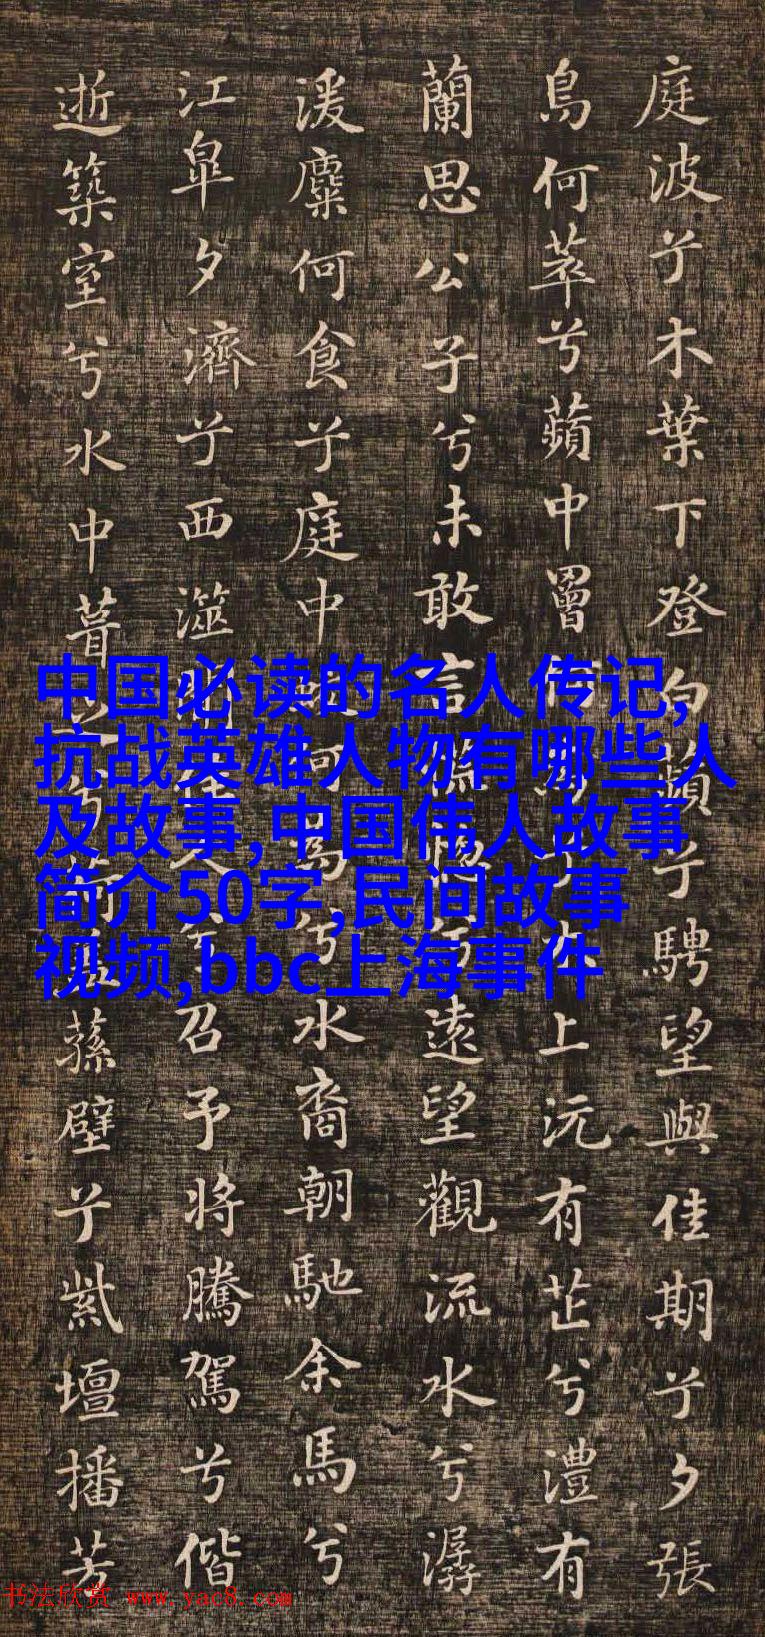 庭波兮木葉下登白蘋兮騁望與佳期兮夕張
鳥何萃兮蘋中罾何為兮木上沅有芷兮澧有
蘭思公子兮未敢言兮遠望觀流水兮潺
湲麋何食兮庭中何為兮水裔朝馳余馬兮
江皋夕濟兮西澨聞佳人兮召予將騰駕兮偕
逝築室兮水中葺之兮蓀壁兮紫壇播芳
中国必读的名人传记,
抗战英雄人物有哪些人
及故事,中国伟人故事
简介50字,民间故事
视频,bbc上海事件
书法欣赏 www.yac8.com